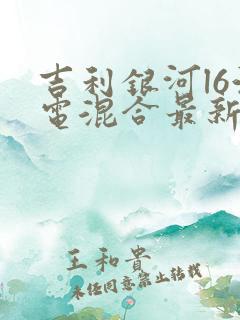 吉利銀河16
電混合最新
王和貴
未經同意禁止轉載